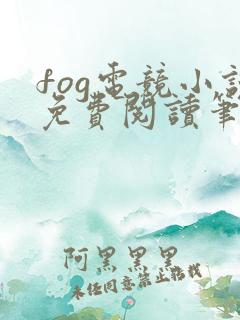 fog電競小說
免費閱讀筆
阿黑黑黑
未经同意禁止搭载